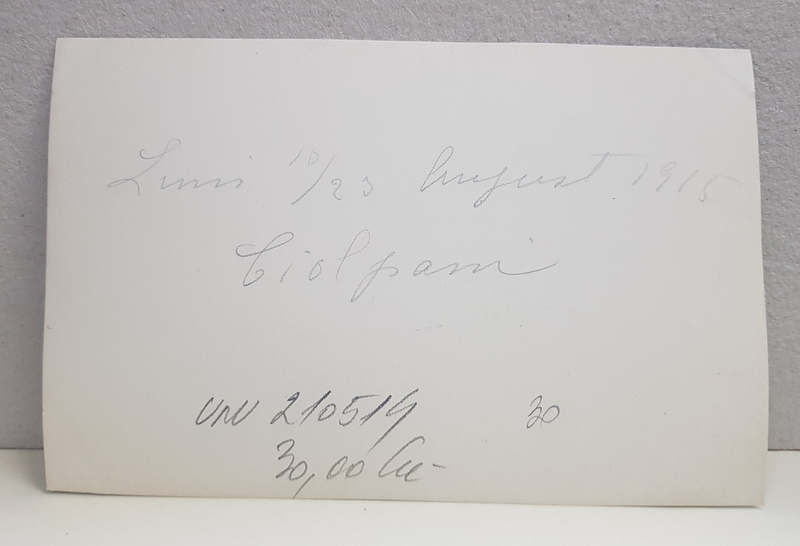 Luni 10/23 August 1915
Ciolpani
VNV 210519 30
30,00 lei